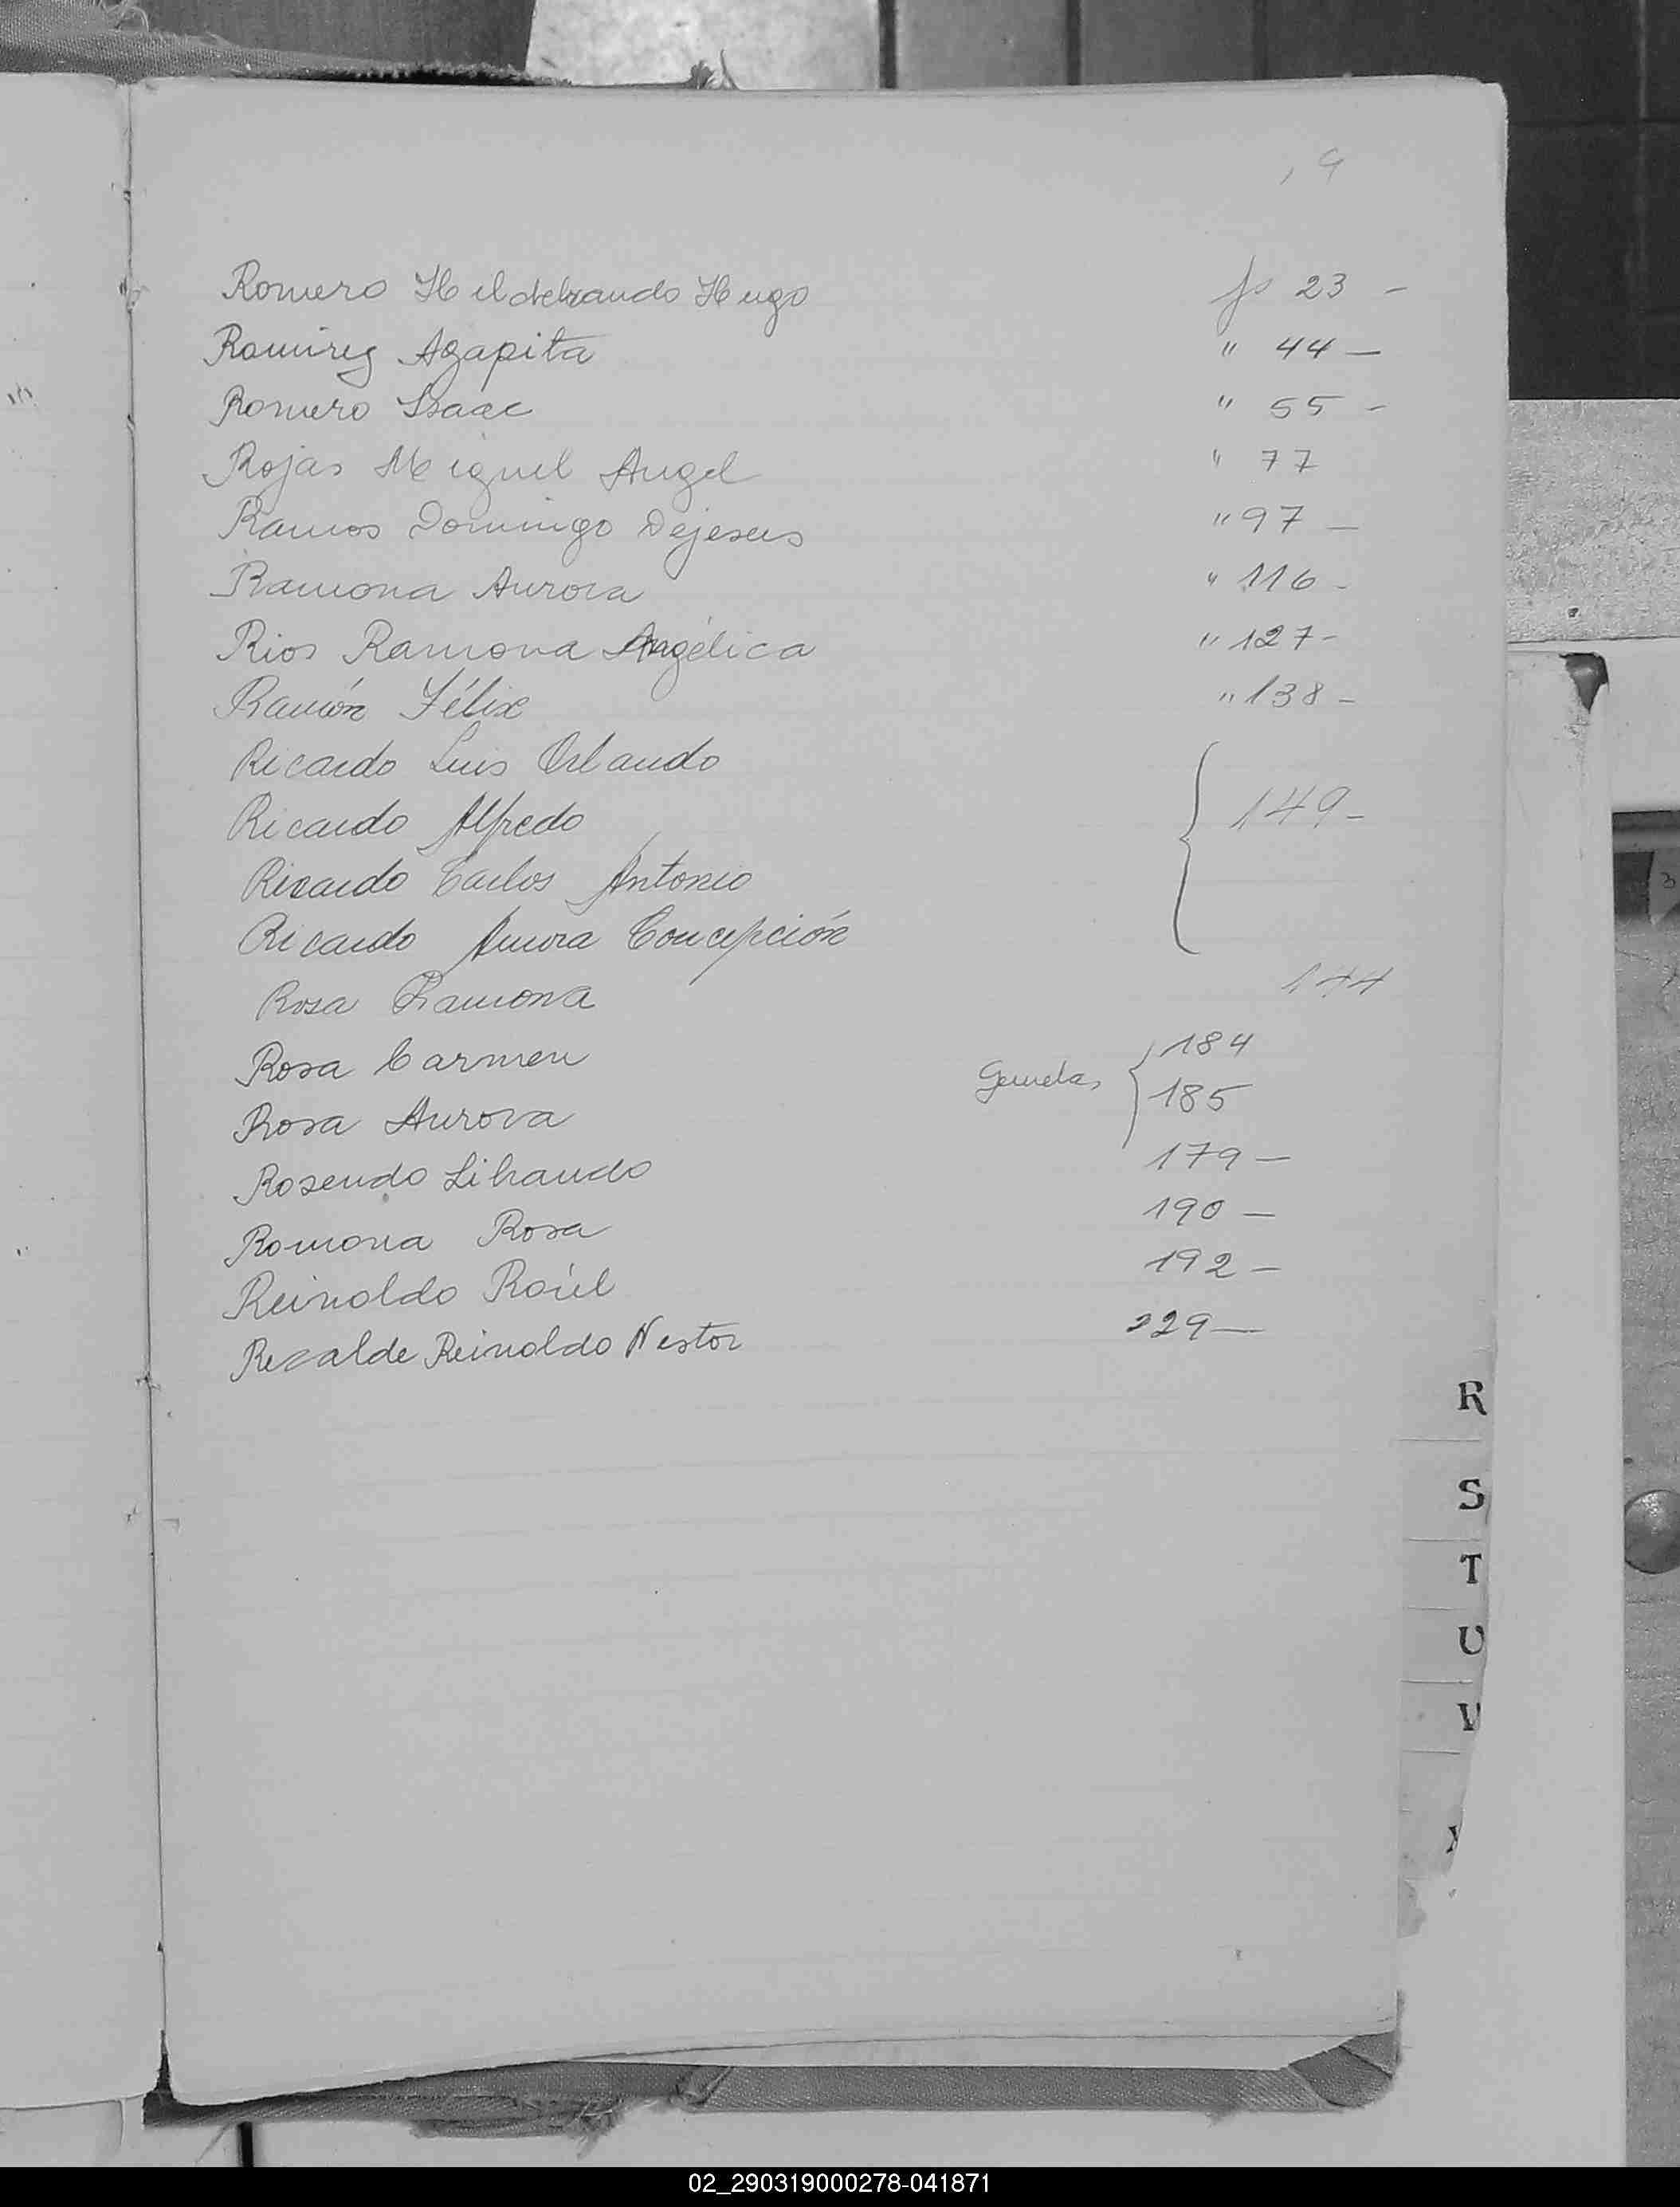 19
Romero Hildebrando Hugo fs 23 -
Ramirez Agapita " 44 -
Romero Isaac " 55 -
Rojas Miguel Angel " 77
Ramos Domingo Dejesus " 97 -
Ramona Aurora " 116 -
Rios Ramona Angélica " 127 -
Ramón Félix " 138 -
Ricardo Luis Orlando
Ricardo Alfredo 149 -
Ricardo Carlos Antonio
Ricardo Aurora Concepción
Rosa Ramona
Rosa Carmen Gemelas 184
Rosa Aurora 185
Rosendo Librando 179 -
Romona Rosa 190 -
Reinoldo Raúl 192 -
Recalde Reinoldo Nestor 229 -
R
S
T
U
V
02_290319000278-041871